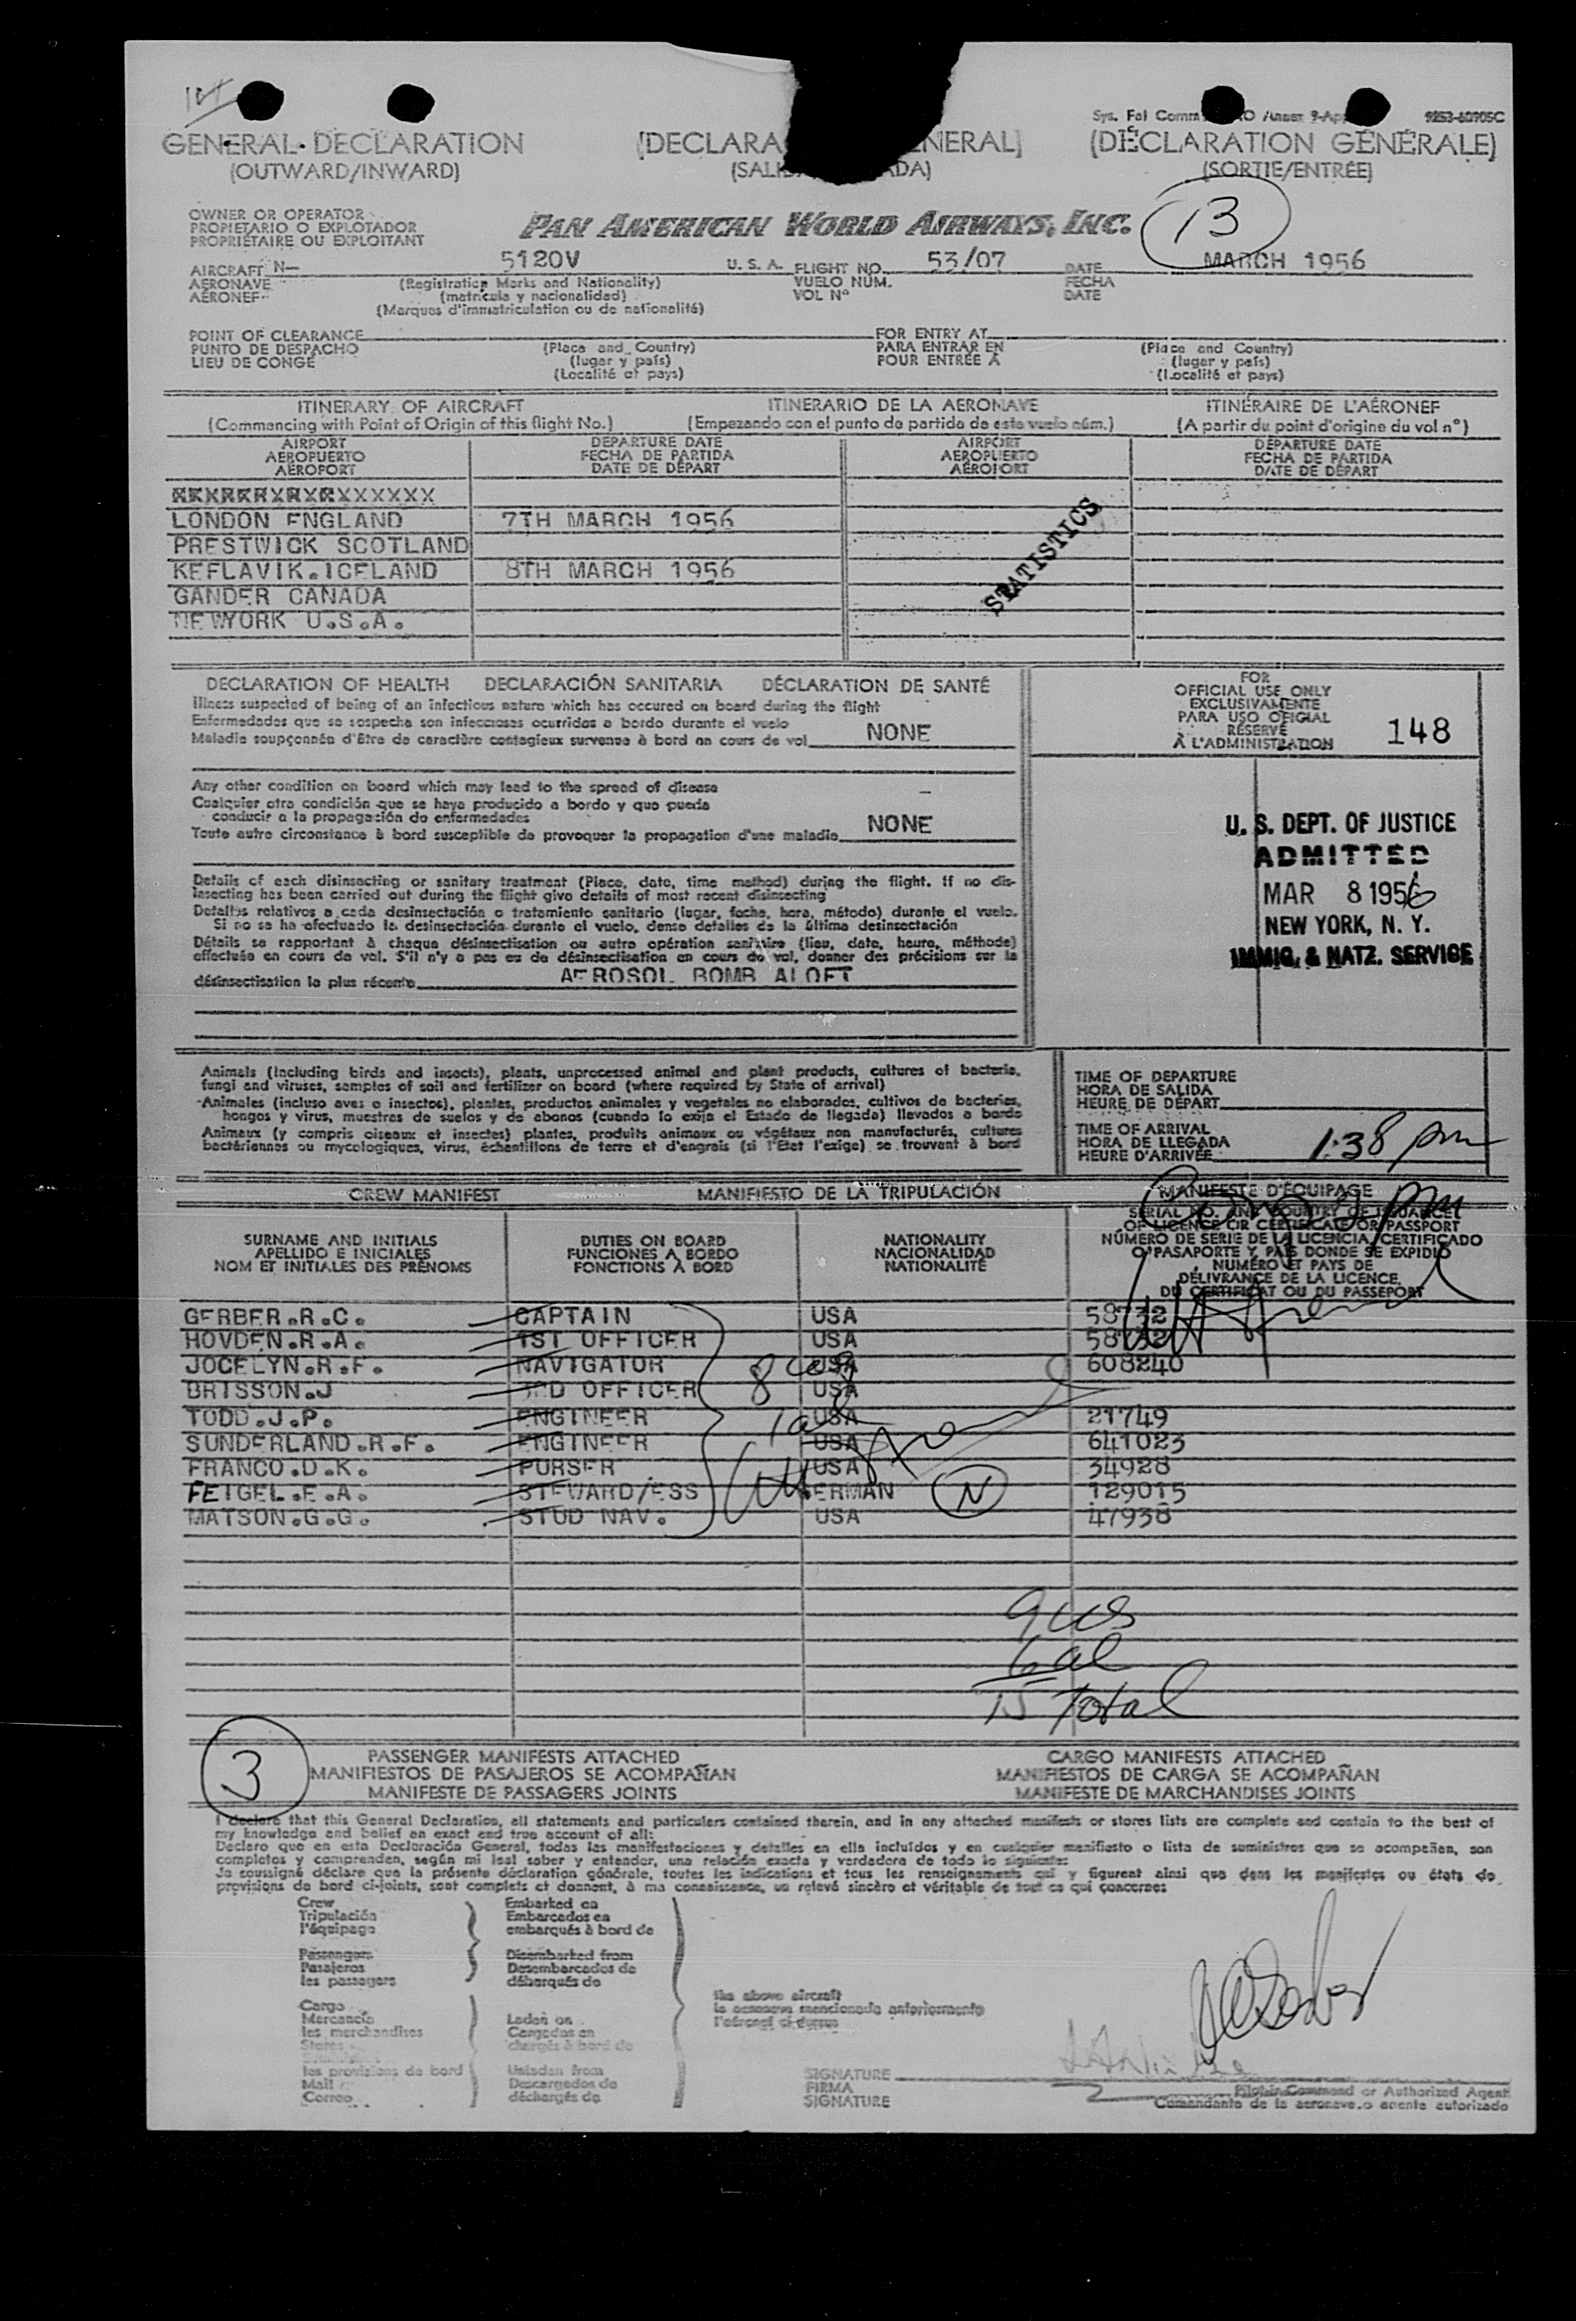 GENERAL DECLARATION
(OUTWARD/INWARD)
(DECLARA NERAL)
(DÉCLARATION GÉNÉRALE)
(SORTIE/ENTRÉE)
9253-60905C
OWNER OR OPERATOR
PROPIETARIO O EXPLOTADOR
PROPRIÉTAIRE OU EXPLOITANT
PAN AMERICAN WORLD AIRWAYS, INC.
13
AIRCRAFT N— 5120V U. S. A. FLIGHT NO. 53/07 DATE MARCH 1956
AERONAVE (Registration Marks and Nationality) VUELO NÚM. FECHA
AÉRONEF (matrícula y nacionalidad) VOL Nº DATE
(Marques d'immatriculation ou de nationalité)
POINT OF CLEARANCE FOR ENTRY AT
PUNTO DE DESPACHO (Place and Country) PARA ENTRAR EN (Place and Country)
LIEU DE CONGÉ (lugar y país) POUR ENTRÉE À (lugar y país)
(Localité et pays) (Localité et pays)
ITINERARY OF AIRCRAFT ITINERARIO DE LA AERONAVE ITINÉRAIRE DE L'AÉRONEF
(Commencing with Point of Origin of this flight No.) (Empezando con el punto de partida de este vuelo núm.) (A partir du point d'origine du vol nº)
AIRPORT DEPARTURE DATE AIRPORT DEPARTURE DATE
AEROPUERTO FECHA DE PARTIDA AEROPUERTO FECHA DE PARTIDA
AÉROPORT DATE DE DÉPART AÉROPORT DATE DE DÉPART
LONDON ENGLAND 7TH MARCH 1956
PRESTWICK SCOTLAND
KEFLAVIK.ICELAND 8TH MARCH 1956
GANDER CANADA
NEWYORK U.S.A.
STATISTICS
DECLARATION OF HEALTH DECLARACIÓN SANITARIA DÉCLARATION DE SANTÉ
Illness suspected of being of an infectious nature which has occured on board during the flight
Enfermedades que se sospecha son infecciosas ocurridas a bordo durante el vuelo
Maladie soupçonnée d'être de caractère contagieux survenue à bord en cours de vol NONE
Any other condition on board which may lead to the spread of disease
Cualquier otra condición que se haya producido a bordo y que pueda
conducir a la propagación de enfermedades
Toute autre circonstance à bord susceptible de provoquer la propagation d'une maladie NONE
Details of each disinsecting or sanitary treatment (Place, date, time method) during the flight. If no dis-
insecting has been carried out during the flight give details of most recent disinsecting
Detalles relativos a cada desinsectación o tratamiento sanitario (lugar, fecha, hora, método) durante el vuelo.
Si no se ha efectuado la desinsectación durante el vuelo, dense detalles de la última desinsectación
Détails se rapportant à chaque désinsectisation ou autre opération sanitaire (lieu, date, heure, méthode)
effectuée en cours de vol. S'il n'y a pas eu de désinsectisation en cours de vol, donner des précisions sur la
désinsectisation la plus récente AEROSOL BOMB ALOFT
FOR
OFFICIAL USE ONLY
EXCLUSIVAMENTE
PARA USO OFICIAL
RÉSERVÉ
À L'ADMINISTRATION
148
U. S. DEPT. OF JUSTICE
ADMITTED
MAR 8 1956
NEW YORK, N. Y.
IMMIG. & NATZ. SERVICE
Animals (including birds and insects), plants, unprocessed animal and plant products, cultures of bacteria,
fungi and viruses, samples of soil and fertilizer on board (where required by State of arrival)
Animales (incluso aves e insectos), plantas, productos animales y vegetales no elaborados, cultivos de bacterias,
hongos y virus, muestras de suelos y de abonos (cuando lo exija el Estado de llegada) llevados a bordo
Animaux (y compris oiseaux et insectes) plantes, produits animaux ou végétaux non manufacturés, cultures
bactériennes ou mycologiques, virus, échantillons de terre et d'engrais (si l'Etat l'exige) se trouvant à bord
TIME OF DEPARTURE
HORA DE SALIDA
HEURE DE DÉPART
TIME OF ARRIVAL
HORA DE LLEGADA
HEURE D'ARRIVÉE 1:38 pm
CREW MANIFEST MANIFIESTO DE LA TRIPULACIÓN MANIFESTE D'ÉQUIPAGE
SURNAME AND INITIALS DUTIES ON BOARD NATIONALITY
APELLIDO E INICIALES FUNCIONES A BORDO NACIONALIDAD
NOM ET INITIALES DES PRÉNOMS FONCTIONS À BORD NATIONALITÉ
SERIAL NO. AND COUNTRY OF ISSUANCE
OF LICENCE OR CERTIFICATE OR PASSPORT
NÚMERO DE SERIE DE LA LICENCIA, CERTIFICADO
O PASAPORTE Y PAÍS DONDE SE EXPIDIÓ
NUMÉRO ET PAYS DE
DÉLIVRANCE DE LA LICENCE,
DU CERTIFICAT OU DU PASSEPORT
GERBER.R.C. CAPTAIN USA
HOVDEN.R.A. 1ST OFFICER USA
JOCELYN.R.F. NAVIGATOR USA 608240
BRISSON.J 3RD OFFICER USA
TODD.J.P. ENGINEER USA 21749
SUNDERLAND.R.F. ENGINEER USA 641023
FRANCO.D.K. PURSER USA 34928
FEIGEL.E.A. STEWARD/ESS GERMAN N 129015
MATSON.G.G. STUD NAV. USA 47938
9 us
6 al
15 Total
3
PASSENGER MANIFESTS ATTACHED CARGO MANIFESTS ATTACHED
MANIFIESTOS DE PASAJEROS SE ACOMPAÑAN MANIFIESTOS DE CARGA SE ACOMPAÑAN
MANIFESTE DE PASSAGERS JOINTS MANIFESTE DE MARCHANDISES JOINTS
I declare that this General Declaration, all statements and particulars contained therein, and in any attached manifests or stores lists are complete and contain to the best of
my knowledge and belief an exact and true account of all:
Declaro que en esta Declaración General, todas las manifestaciones y detalles en ella incluídos y en cualquier manifiesto o lista de suministros que se acompañan, son
completos y comprenden, según mi leal saber y entender, una relación exacta y verdadera de todo lo siguiente:
Je soussigné déclare que la présente déclaration générale, toutes les indications et tous les renseignements qui y figurent ainsi que dans les manifestes ou états de
provisions de bord ci-joints, sont complets et donnent, à ma connaissance, un relevé sincère et véritable de tout ce qui concerne:
Crew Embarked on
Tripulación Embarcados en
l'équipage embarqués à bord de
Passengers Disembarked from
Pasajeros Desembarcados de
les passagers débarqués de
the above aircraft
la aeronave mencionada anteriormente
l'aéronef ci-dessus
Cargo
Mercancía Laden on
les merchandises Cargados en
Stores chargés à bord de
les provisions de bord Unladen from
Mail Descargados de
Correo déchargés de
SIGNATURE
FIRMA
SIGNATURE
Pilot in Command or Authorized Agent
Comandante de la aeronave o agente autorizado